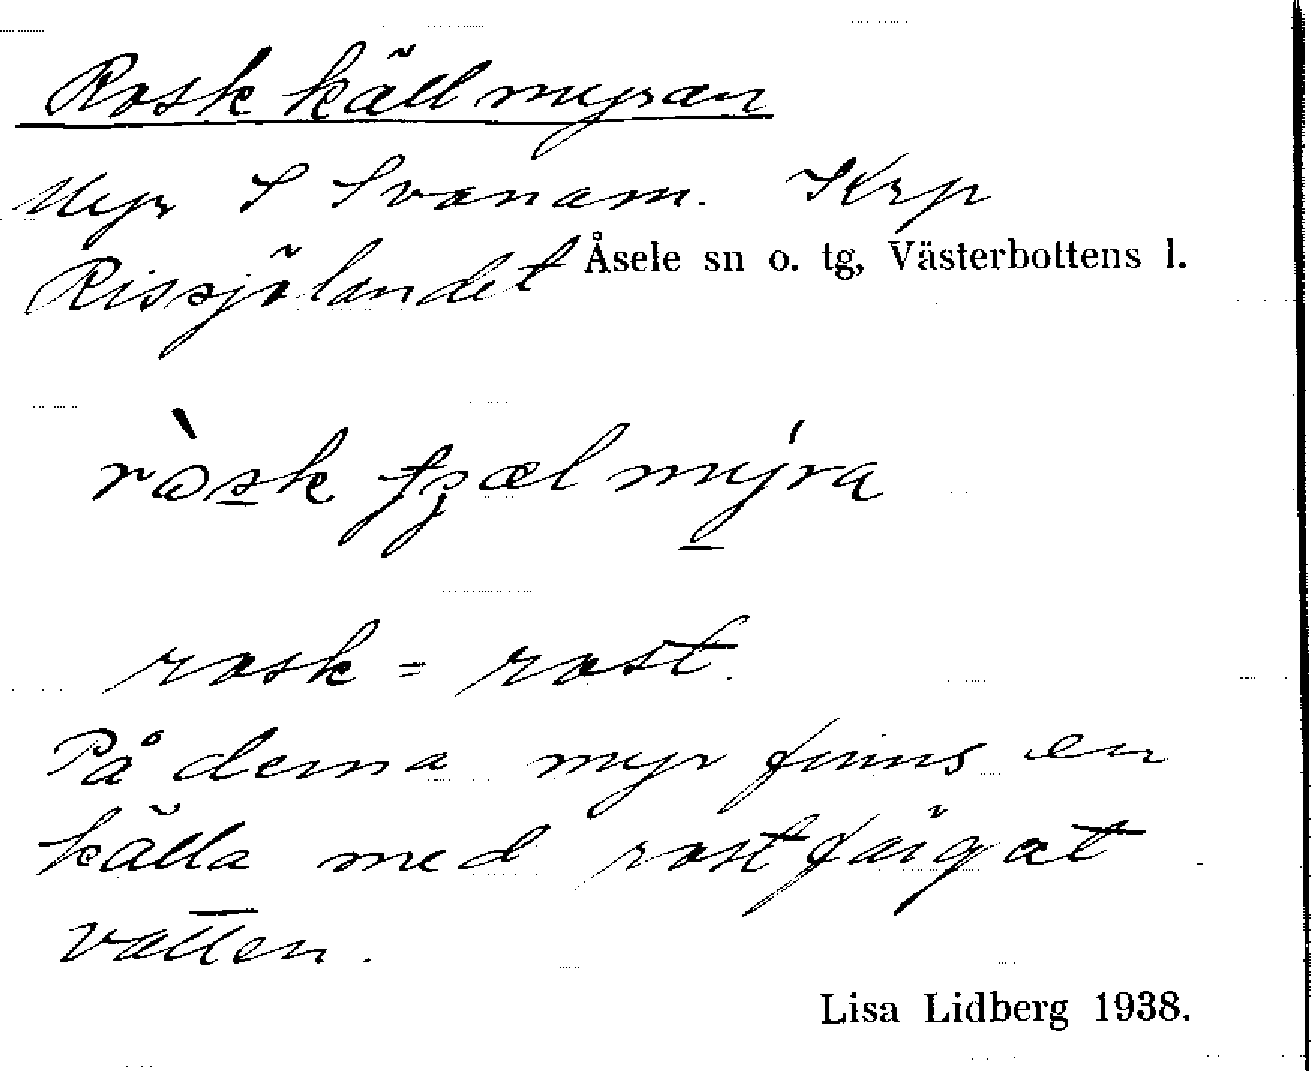 Roskkällmyran
Myr S Svanam. Krp
Rissjölandet Åsele sn o. tg, Västerbottens l.
rosk = rost.
På denna myr finns en
källa med rostfärgat
vatten.
Lisa Lidberg 1938.